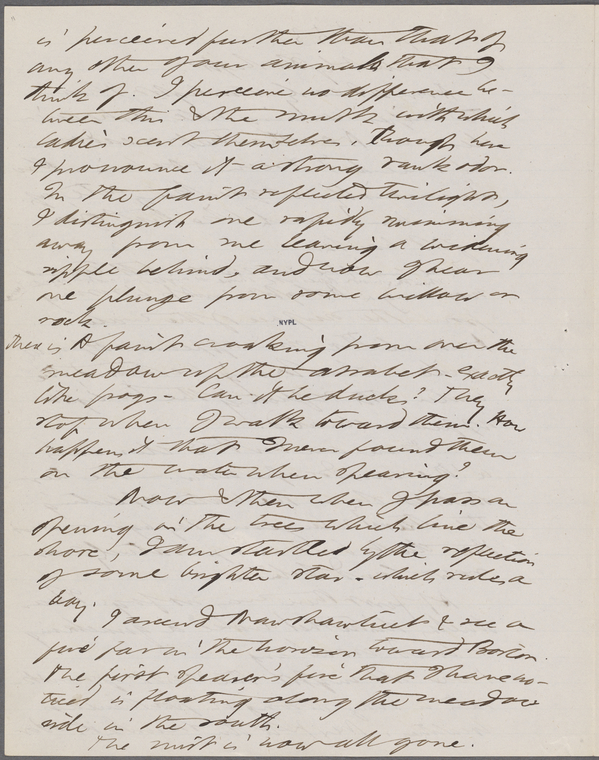 is perceived further than that of
any other of our animals that I
think of. I perceive no difference be-
tween this & the musk with which
ladies scent themselves, though here
I pronounce it a strong rank odor.
In the faint reflected twilight,
I distinguish one rapidly swimming
away from me leaving a widening
ripple behind, and now I hear
one plunge from some willow or
rock.
NYPL
There is A faint croaking from over the
meadow up the assabet - exactly
like frogs - Can it be ducks? They
stop when I walk toward them. How
happens it that I never found them
on the water when spearing?
Now & then when I pass an
opening in the trees which line the
shore, I am startled by the reflection
of some brighter star - which rides a
bay.
I ascend Nawshawtuct & see a
fire far in the horizon toward Boston.
The first spearer's fire that I have no-
ticed is floating along the meadow
side in the south.
The mist is now all gone.